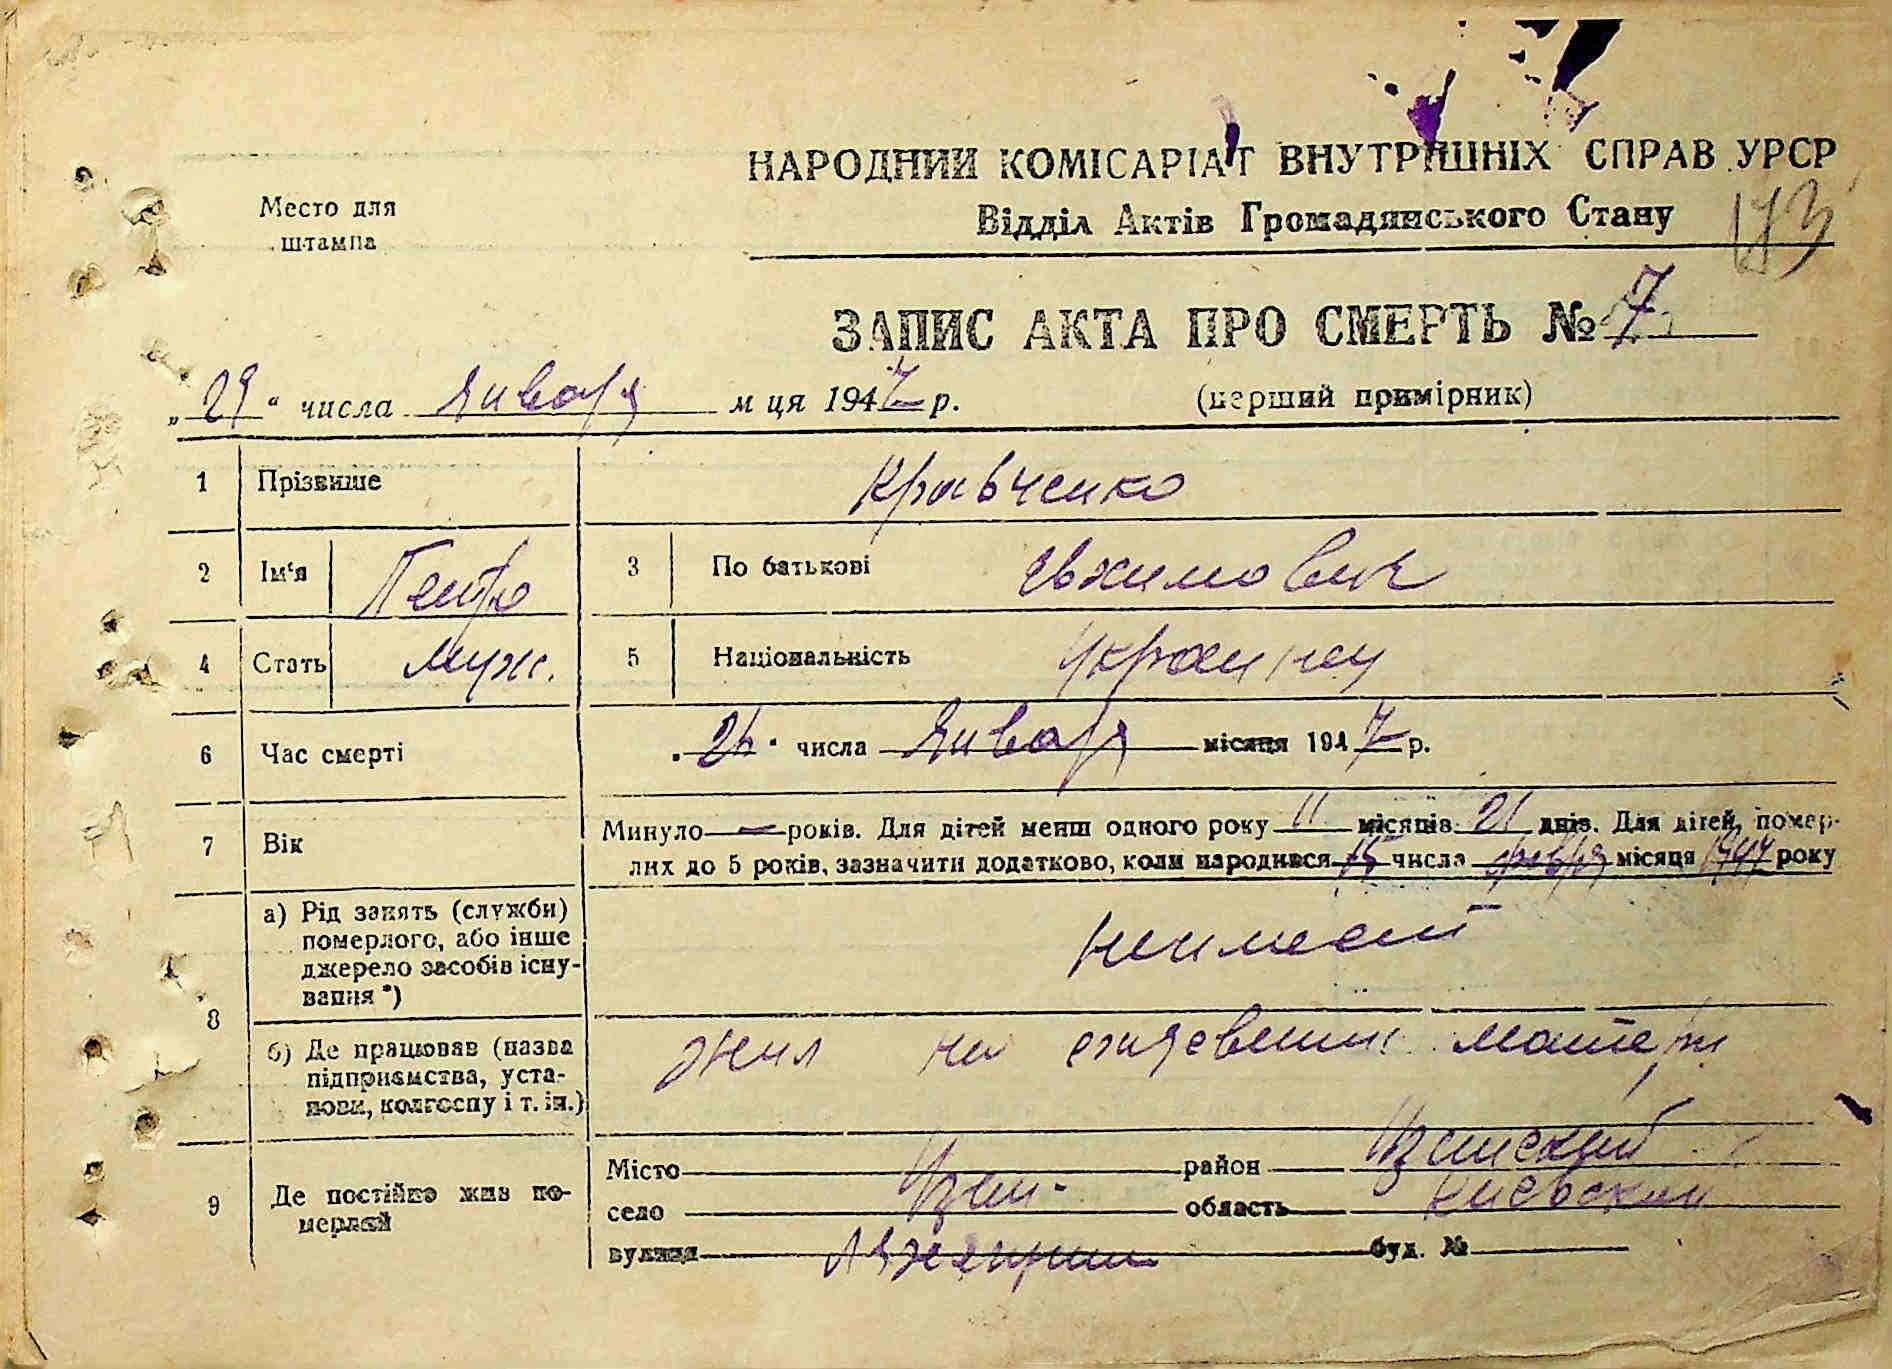 НАРОДНИЙ КОМІСАРІАТ ВНУТРІШНІХ СПРАВ УРСР
Место для
штампа
Відділ Актів Громадянського Стану
173
ЗАПИС АКТА ПРО СМЕРТЬ № 7
„29“ числа Января м ця 1947 р. (перший примірник)
1 Прізвище Кравченко
2 Ім'я Петро 3 По батькові
4 Стать муж. 5 Національність
6 Час смерті числа Января місяця 1947 р.
7 Вік Минуло — років. Для дітей менш одного року 11 місяців 21 днів. Для дітей, помер-
лих до 5 років, зазначити додатково, коли народився 15 числа місяця року
8 а) Рід занять (служби)
померлого, або інше
джерело засобів існу-
вання *)
б) Де працював (назва
підприємства, уста-
нови, колгоспу і т. ін.)
жил на матери
9 Де постійно жив по-
мерлий
Місто Узин район Узинский
село область Киевская
вулиця буд. №